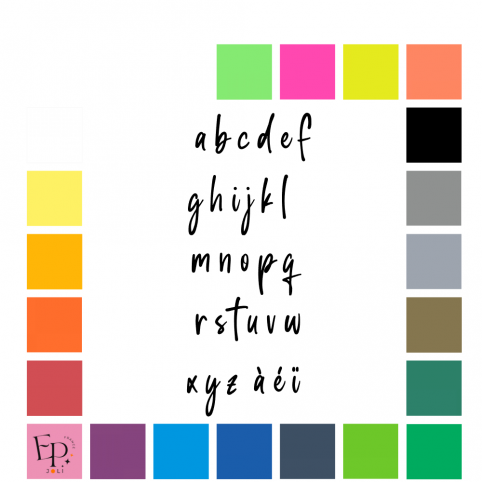 a b c d e f
g h i j k l
m n o p q
r s t u v w
x y z à é ï
EP
JOLI